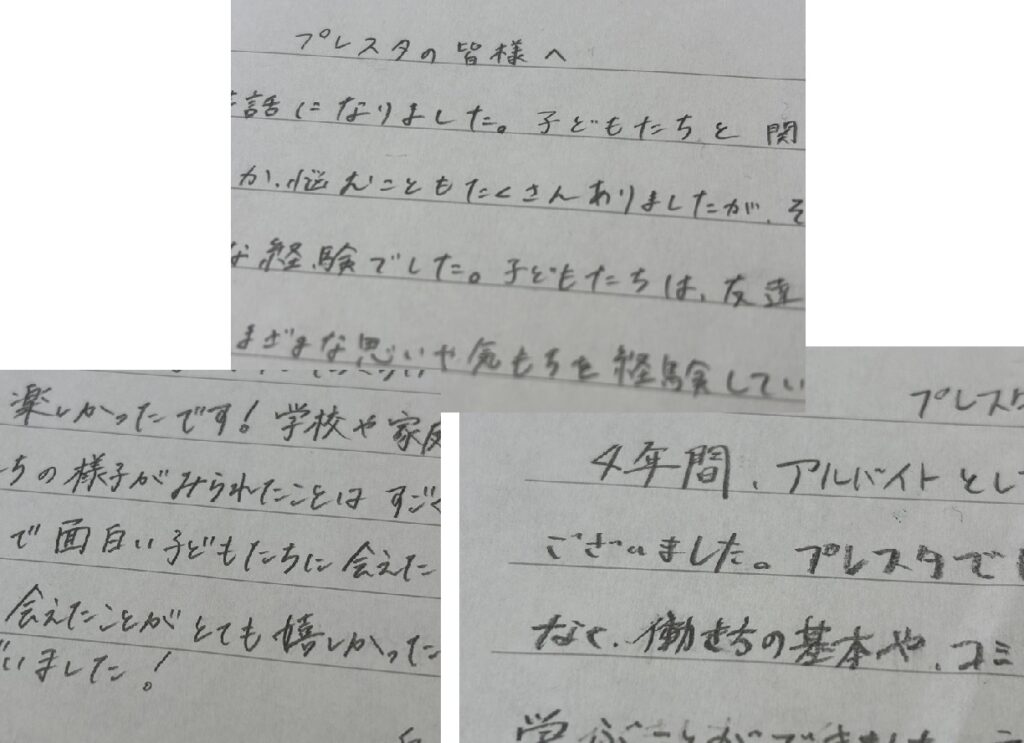 プレスタの皆様へ
話になりました。子どもたちと関
か、悩むこともたくさんありましたが、そ
な経験でした。子どもたちは、友達
まざまな思いや気もちを経験してい
楽しかったです!学校や家庭
ちの様子がみられたことはすごく
で面白い子どもたちに会えた
会えたことがとても嬉しかった
いました!
プレスタ
4年間、アルバイトとし
ございました。プレスタで
なく、働き方の基本や、コミ
学ぶことができました